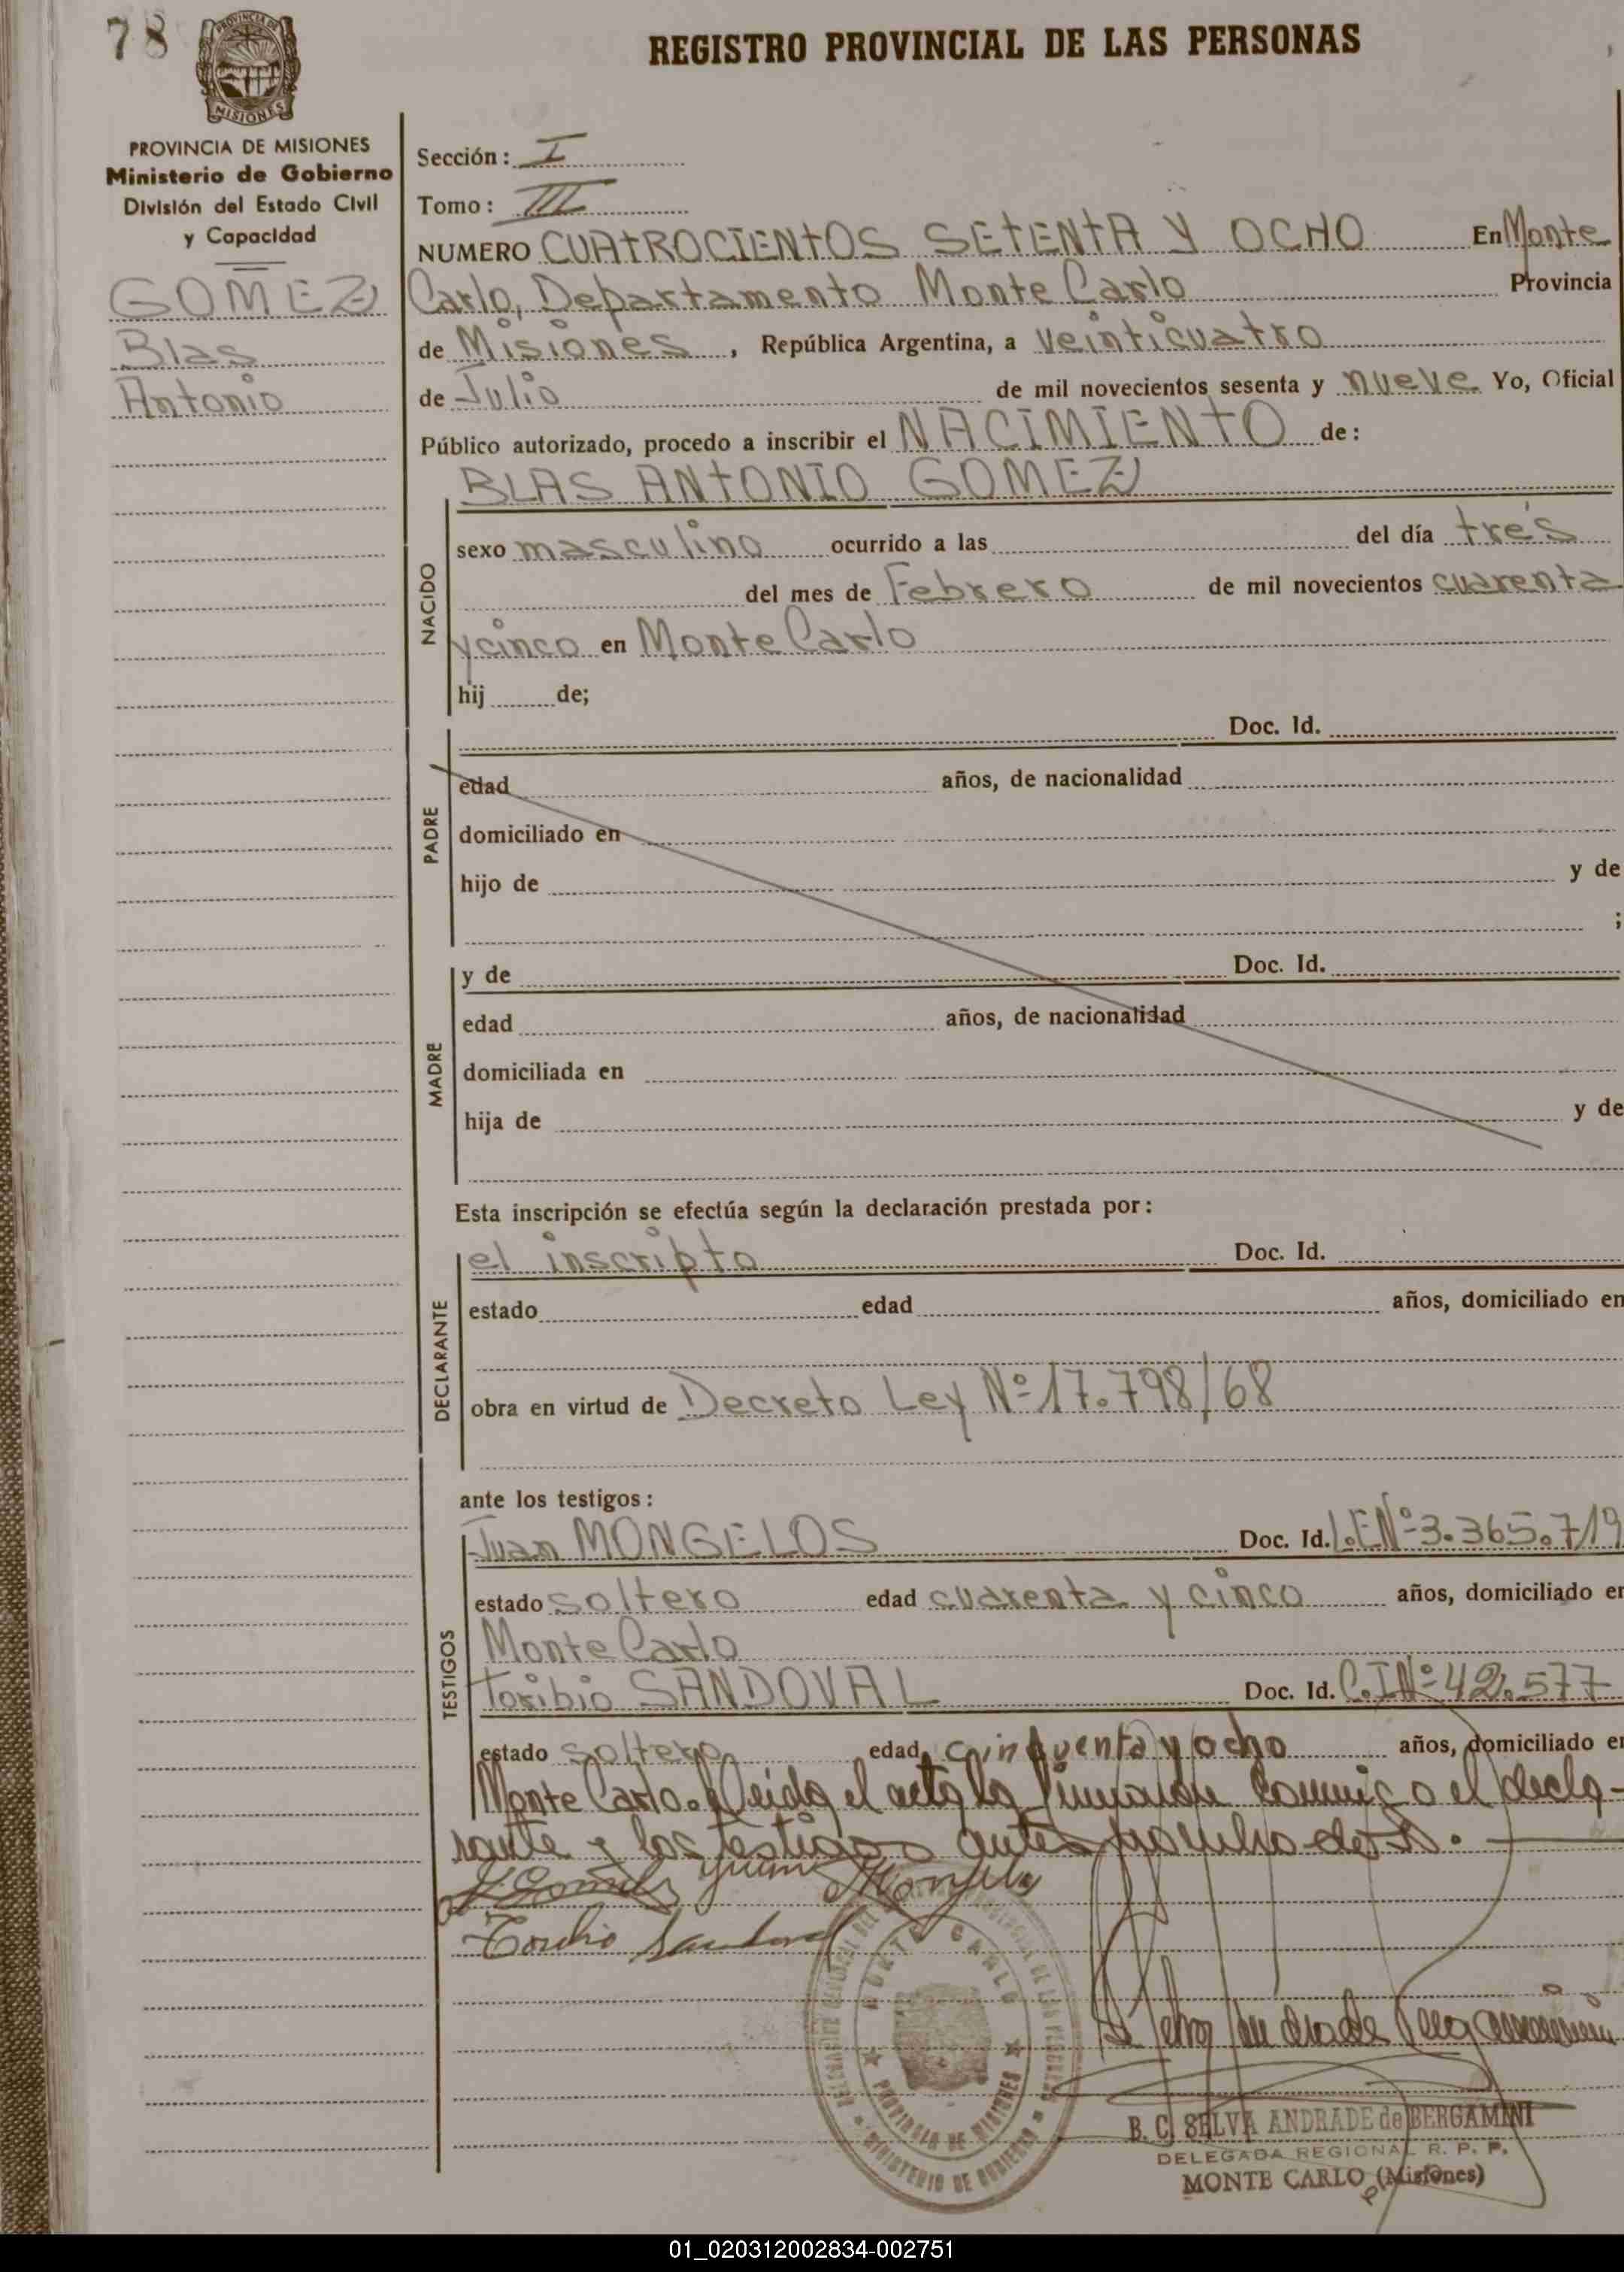 78
PROVINCIA DE
MISIONES
REGISTRO PROVINCIAL DE LAS PERSONAS
PROVINCIA DE MISIONES
Ministerio de Gobierno
División del Estado Civil
y Capacidad
GOMEZ
Blas
Antonio
Sección: I
Tomo: III
NUMERO CUATROCIENTOS SETENTA Y OCHO En Monte
Carlo, Departamento Monte Carlo Provincia
de Misiones, República Argentina, a veinticuatro
de Julio de mil novecientos sesenta y nueve Yo, Oficial
Público autorizado, procedo a inscribir el NACIMIENTO de:
BLAS ANTONIO GOMEZ
NACIDO
sexo masculino ocurrido a las del día trés
del mes de Febrero de mil novecientos cuarenta
y cinco en Monte Carlo
hij de;
PADRE
Doc. Id.
edad años, de nacionalidad
domiciliado en
hijo de y de
;
MADRE
y de Doc. Id.
edad años, de nacionalidad
domiciliada en
hija de y de
Esta inscripción se efectúa según la declaración prestada por:
DECLARANTE
el inscripto Doc. Id.
estado edad años, domiciliado en
obra en virtud de Decreto Ley Nº 17.798/68
ante los testigos:
TESTIGOS
Juan MONGELOS Doc. Id. L.E Nº 3.365.719
estado soltero edad cuarenta y cinco años, domiciliado en
Monte Carlo
Toribio SANDOVAL Doc. Id. C.I Nº 42.577
estado soltero edad cinquenta y ocho años, domiciliado en
Monte Carlo. Leida el acta la firmaron conmigo el decla-
rante y los testigos antes
Toribio Sandoval
MONTE CARLO
PROVINCIA DE MISIONES
MINISTERIO DE GOBIERNO
B. C. SELVA ANDRADE de BERGAMINI
DELEGADA REGIONAL R. P. P.
MONTE CARLO (Misiones)
01_020312002834-002751